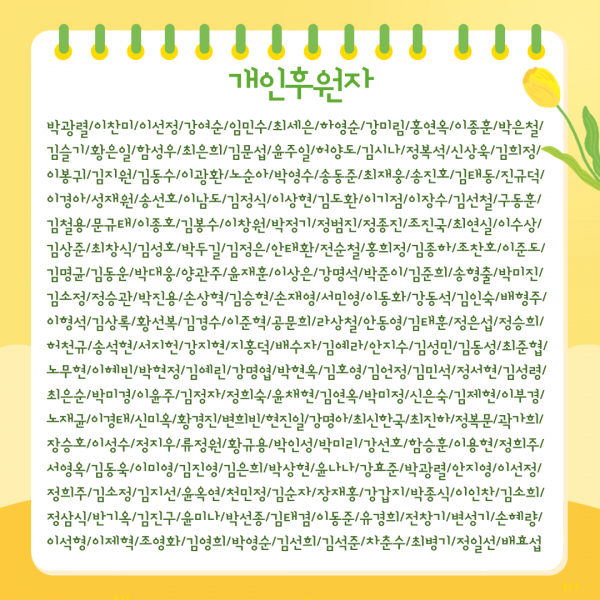 개인후원자
박광렬/이찬미/이선정/강여순/임민수/최세은/하영순/강미림/홍연옥/이종훈/박은철/
김슬기/황은일/함성우/최은희/김문섭/윤주일/허양도/김시나/정복석/신상욱/김희정/
이봉귀/김지원/김동수/이광환/노순아/박영수/송동준/최재웅/송진호/김태동/진규덕/
이경아/성재원/송선호/이남도/김정식/이상현/김도환/이기점/이장수/김선철/구동훈/
김철용/문규태/이종호/김봉수/이창원/박정기/정범진/정종진/조진국/최연실/이수상/
김상준/최창식/김성호/박두길/김정은/안태환/전순철/홍희정/김종하/조찬호/이준도/
김명균/김동운/박대웅/양관주/윤재훈/이상은/강명석/박준이/김준희/송형출/박미진/
김소정/정승관/박진용/손상혁/김승현/손재영/서민영/이동화/강동석/김인숙/배형주/
이형석/김상록/황선복/김경수/이준혁/공문희/라상철/안동영/김태훈/정은섭/정승희/
허천규/송석현/서지헌/강지현/지홍덕/배수자/김예라/안지수/김성민/김동성/최준협/
노무현/이혜빈/박현정/김예린/강명엽/박현옥/김호영/김언정/김민석/정서현/김성령/
최은순/박미경/이윤주/김정자/정희숙/윤채현/김연옥/박미정/신은숙/김제현/이부경/
노재균/이경태/신미옥/황경진/변희빈/현진일/강명아/최신한국/최진하/정복문/곽가희/
장승호/이성수/정지우/류정원/황규용/박인성/박미리/강선호/함승훈/이용현/정희주/
서영옥/김동욱/이미영/김진영/김은희/박상현/윤나나/강효준/박광렬/안지영/이선정/
정희주/김소정/김지선/윤옥연/천민정/김순자/장재홍/강갑지/박종식/이인찬/김소희/
정삼식/반기옥/김진구/윤미나/박선종/김태겸/이동준/유경희/전창기/변성기/손혜량/
이석형/이제혁/조영화/김영희/박영순/김선희/김석준/차춘수/최병기/정일선/배효섭